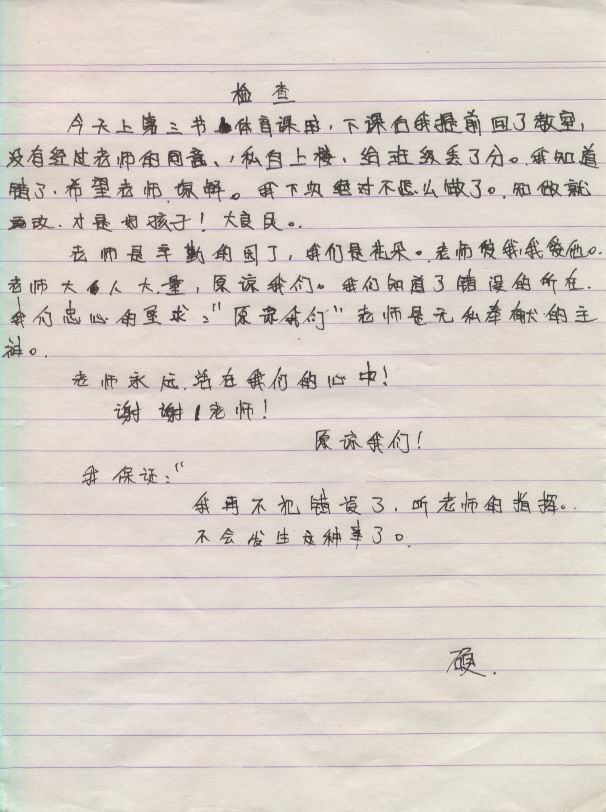 检查
今天上第三节体育课时，下课后我提前回了教室，
没有经过老师的同意、，私自上楼，给班级丢了分。我知道
错了，希望老师 谅解。我下次绝对不这么做了。知做就
改，才是好孩子！大良民。
老师是辛勤的园丁，我们是花朵。老师爱我，我爱他。
老师大人大量，原谅我们。我们知道了错误的所在.
我们忠心的要求：“原谅我们”老师是无私奉献的主
。
老师永远.活在我们的心中！
谢谢老师！
原谅我们！
我保证：“
我再不犯错误了，听老师的指挥。
不会发生这种事了。
硕.